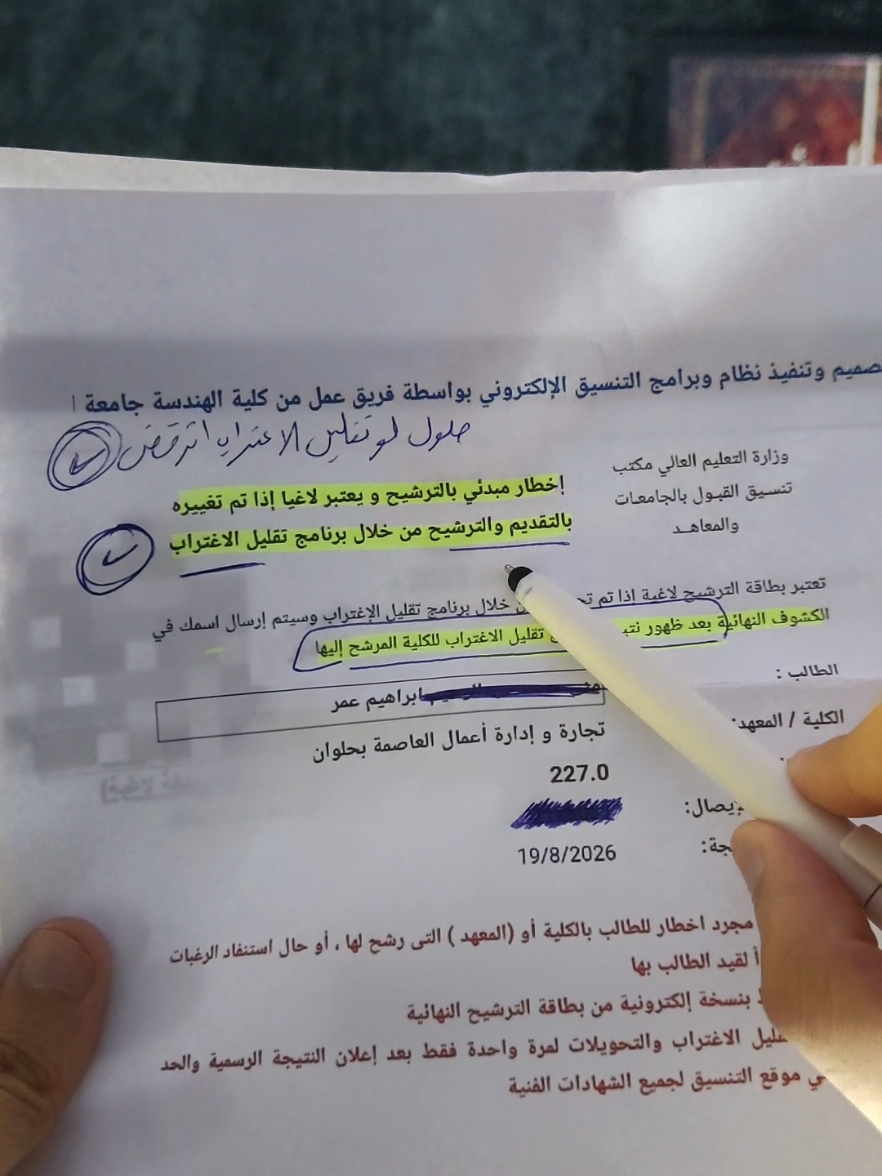 صميم وتنفيذ نظام وبرامج التنسيق الإلكتروني بواسطة فريق عمل من كلية الهندسة جامعة
حلول لو تقليل الاغتراب اترفض
وزارة التعليم العالي مكتب
تنسيق القبول بالجامعات
والمعاهد
إخطار مبدئي بالترشيح و يعتبر لاغيا إذا تم تغييره
بالتقديم والترشيح من خلال برنامج تقليل الاغتراب
تعتبر بطاقة الترشيح لاغية اذا تم خلال برنامج تقليل الإغتراب وسيتم إرسال اسمك في
الكشوف النهائية بعد ظهور تقليل الاغتراب للكلية المرشح إليها
الطالب :
ابراهيم عمر
الكلية / المعهد:
تجارة و إدارة أعمال العاصمة بحلوان
227.0
الإيصال:
19/8/2026
مجرد اخطار للطالب بالكلية أو (المعهد ) التى رشح لها ، أو حال استنفاد الرغبات
لقيد الطالب بها
بنسخة إلكترونية من بطاقة الترشيح النهائية
الاغتراب والتحويلات لمرة واحدة فقط بعد إعلان النتيجة الرسمية والحد
موقع التنسيق لجميع الشهادات الفنية